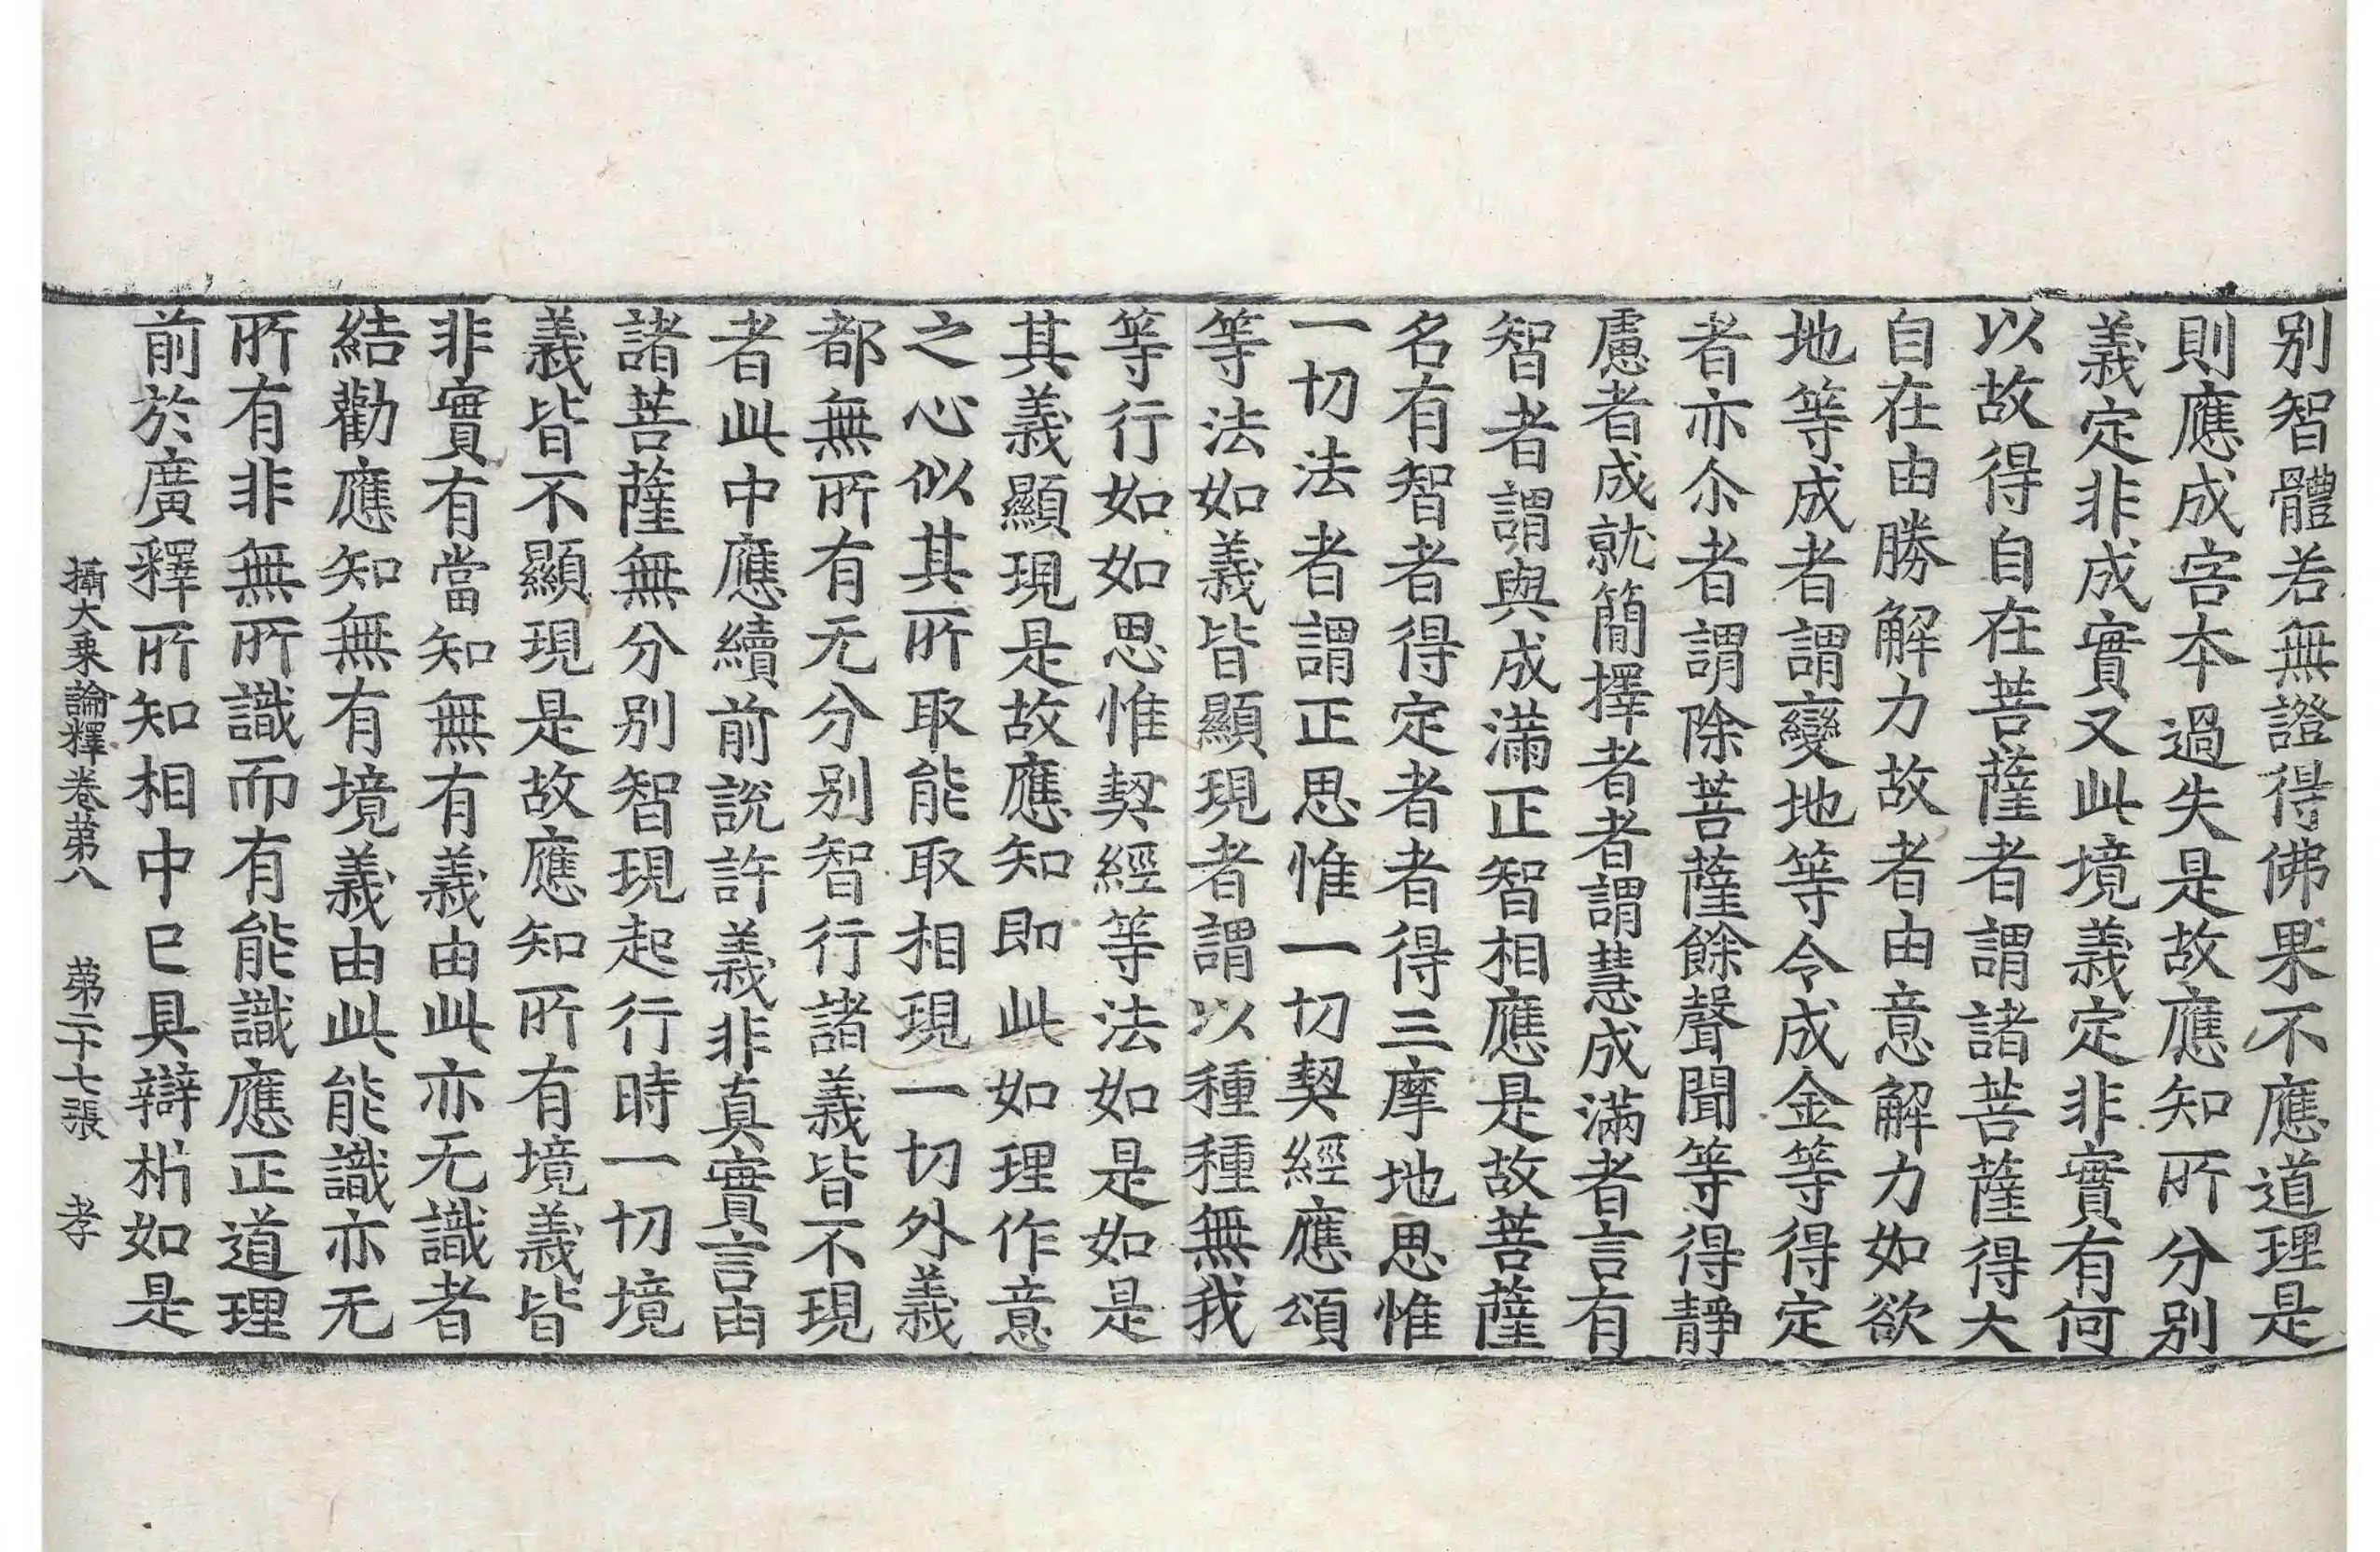 别智體若無證得佛果不應道理是
則應成害本過失是故應知所分别
義定非成實又此境義定非實有何
以故得自在菩薩者謂諸菩薩得大
自在由勝解力故者由意解力如欲
地等成者謂變地等令成金等得定
者亦尒者謂除菩薩餘聲聞等得靜
慮者成就簡擇者者謂慧成滿者言有
智者謂與成滿正智相應是故菩薩
名有智者得定者者得三摩地思惟
一切法者謂正思惟一切契經應頌
等法如義皆顯現者謂以種種無我
等行如如思惟契經等法如是如是
其義顯現是故應知即此如理作意
之心似其所取能取相現一切外義
都無所有无分别智行諸義皆不現
者此中應續前說許義非真實言由
諸菩薩無分别智現起行時一切境
義皆不顯現是故應知所有境義皆
非實有當知無有義由此亦无識者
結勸應知無有境義由此能識亦无
所有非無所識而有能識應正道理
前於廣釋所知相中已具辯析如是
攝大乗論釋卷第八 第二十七張 孝